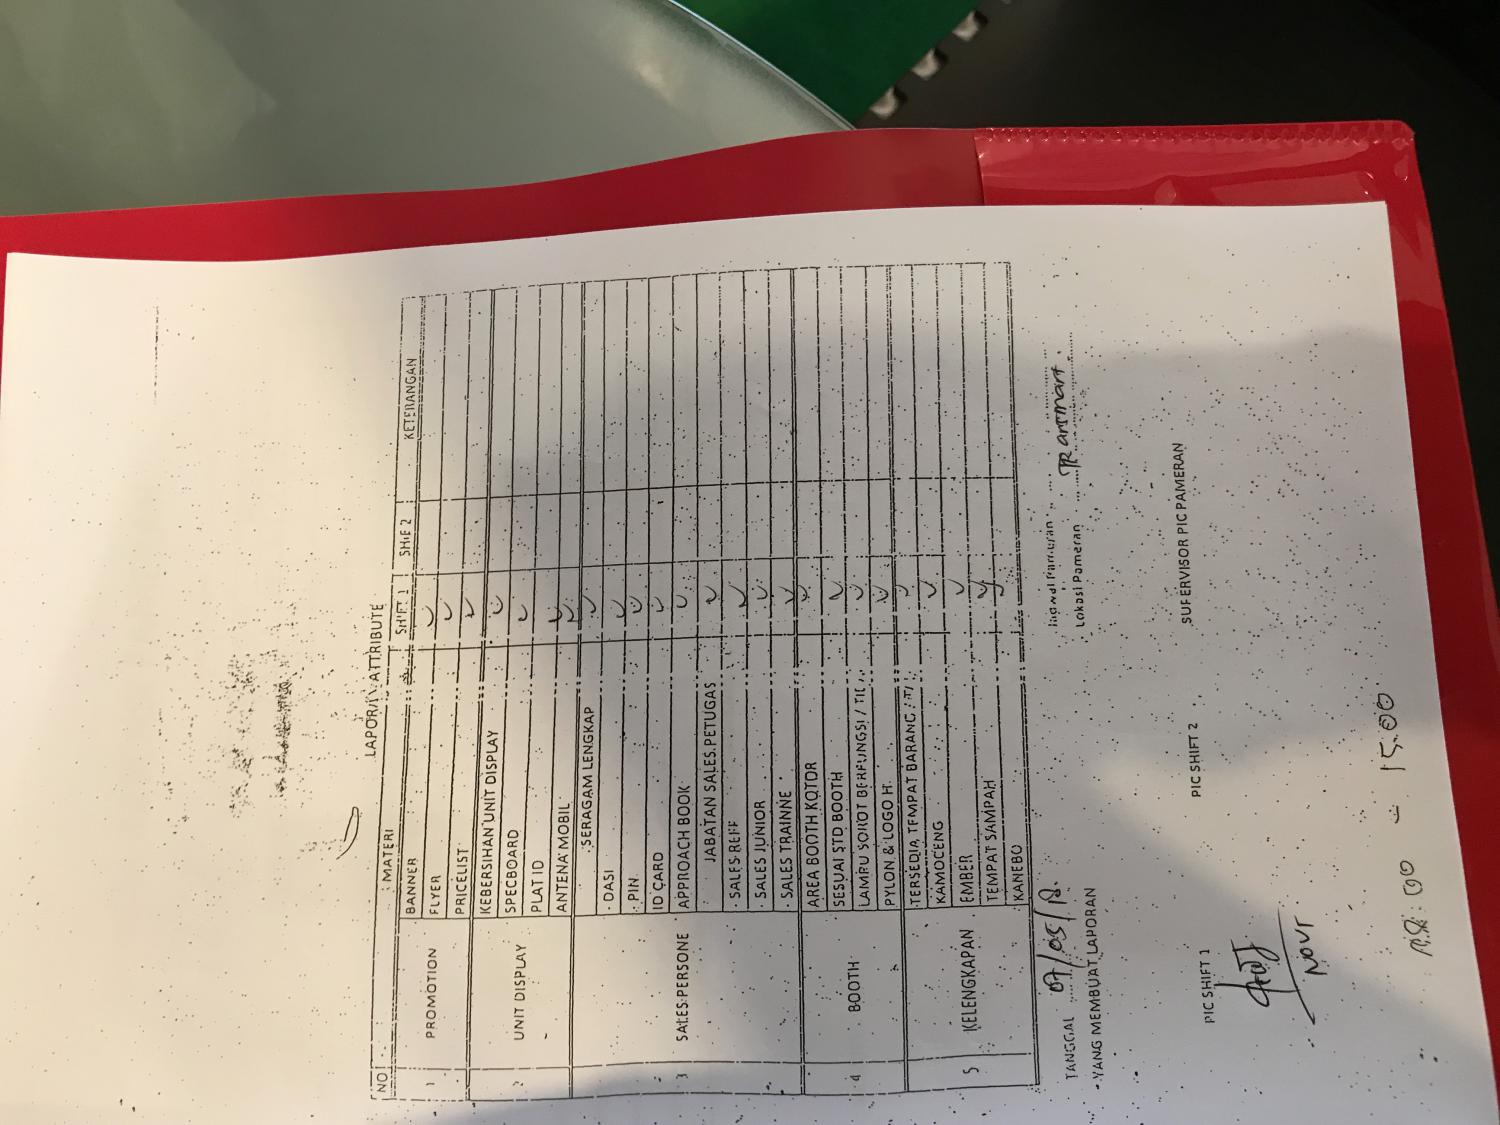 LAPORAN ATTRIBUTE
NO MATERI SHIFT 1 SHIF 2 KETERANGAN
1 PROMOTION BANNER
FLYER
PRICELIST
2 UNIT DISPLAY KEBERSIHAN UNIT DISPLAY
SPECBOARD
PLAT ID
ANTENA MOBIL
3 SALES PERSONE SERAGAM LENGKAP
DASI
PIN
ID CARD
APPROACH BOOK
JABATAN SALES PETUGAS
SALES REFF
SALES JUNIOR
SALES TRAINNE
4 BOOTH AREA BOOTH KOTOR
SESUAI STD BOOTH
LAMPU SOROT BERFUNGSI /
PYLON & LOGO H
5 KELENGKAPAN TERSEDIA TEMPAT BARANG
KAMOCENG
EMBER
TEMPAT SAMPAH
KANEBO
TANGGAL 07/05/18. Pameran
YANG MEMBUAT LAPORAN Lokasi Pameran Transmart.
PIC SHIFT 1 PIC SHIFT 2 SUPERVISOR PIC PAMERAN
NOVI
15.00